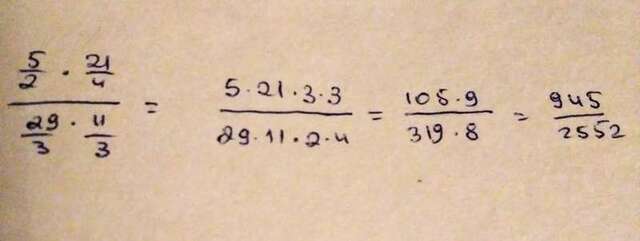 \frac{\frac{5}{2} \cdot \frac{21}{4}}{\frac{29}{3} \cdot \frac{11}{3}} = \frac{5 \cdot 21 \cdot 3 \cdot 3}{29 \cdot 11 \cdot 2 \cdot 4} = \frac{105 \cdot 9}{319 \cdot 8} = \frac{945}{2552}